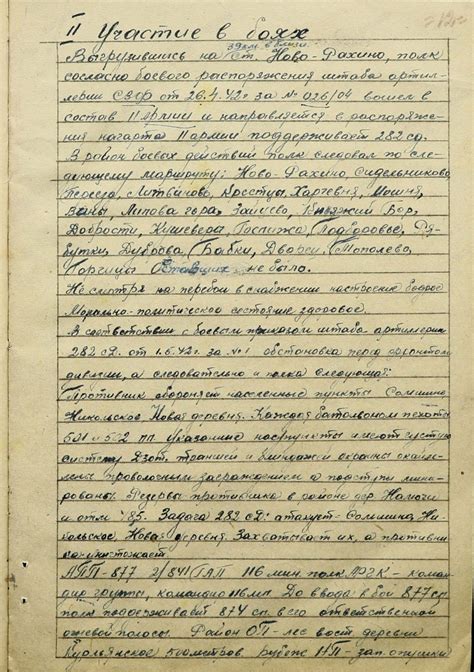 II Участие в боях
Выгрузившись на ст. Ново-Рахино, полк
согласно боевого распоряжения штаба артил-
лерии СЗФ от 26.4.42г за № 026/04 вошел в
состав 11 армии и направляется в распоряже-
ния начарта 11 армии поддерживает 282 сд.
В район боевых действий полк следовал по сле-
дующему маршруту: Ново-Рахино, Сидельниково
Литвиново, Крестцы, Харчевня, Мошня,
Липова гора, Зайцево, Княжий Бор,
Добрости, Кушевера, Подборовье, Ря-
бутки, Дуброва, Бабки, Дворец,
Горчицы Отставших не было.
Не смотря на перебои в снабжении настроение бодрое
Морально-политическое состояние здоровое.
В соответствии с боевым приказом штаба артиллерии
282 сд. от 1.5.42г. за №1 обстановка перед фронтом
дивизии, а следовательно и полка следующая:
Противник обороняет населенные пункты Сомшино
Никольское, Новая деревня. Каждая батальоном пехоты
пп. Указанные нас. пункты имеют густую
систему Дзот, траншей и блиндажей
проволочным заграждением а подступы мини-
рованы. Резервы противника в районе дер. Налючи
и отм. 85. Задача 282 сд: атакует Сомшино, Ни-
кольское, Новая деревня. Захватывает их, а противни-
ка уничтожает.
АПП-877 2/841 ГАП 116 мин. полк АРГК - коман-
дир группы, командир 116 мп. До ввода в бой 877 сп.
полк поддерживает 874 сп. в его ответственной
огневой полосы. Район ОП - лес вост. деревни
Курляндское 500 метров. Рубеж НП - зап. опушки